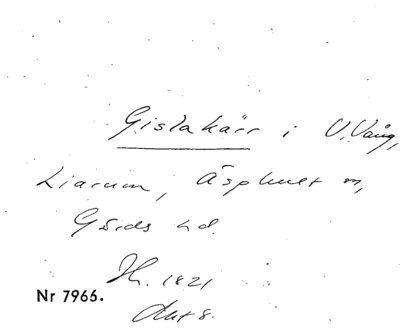 Gislakärr i V. Vång,
Liarum, Äsphult sn,
Gärds hd.
H. 1821
Nr 7966.
Akt 8.